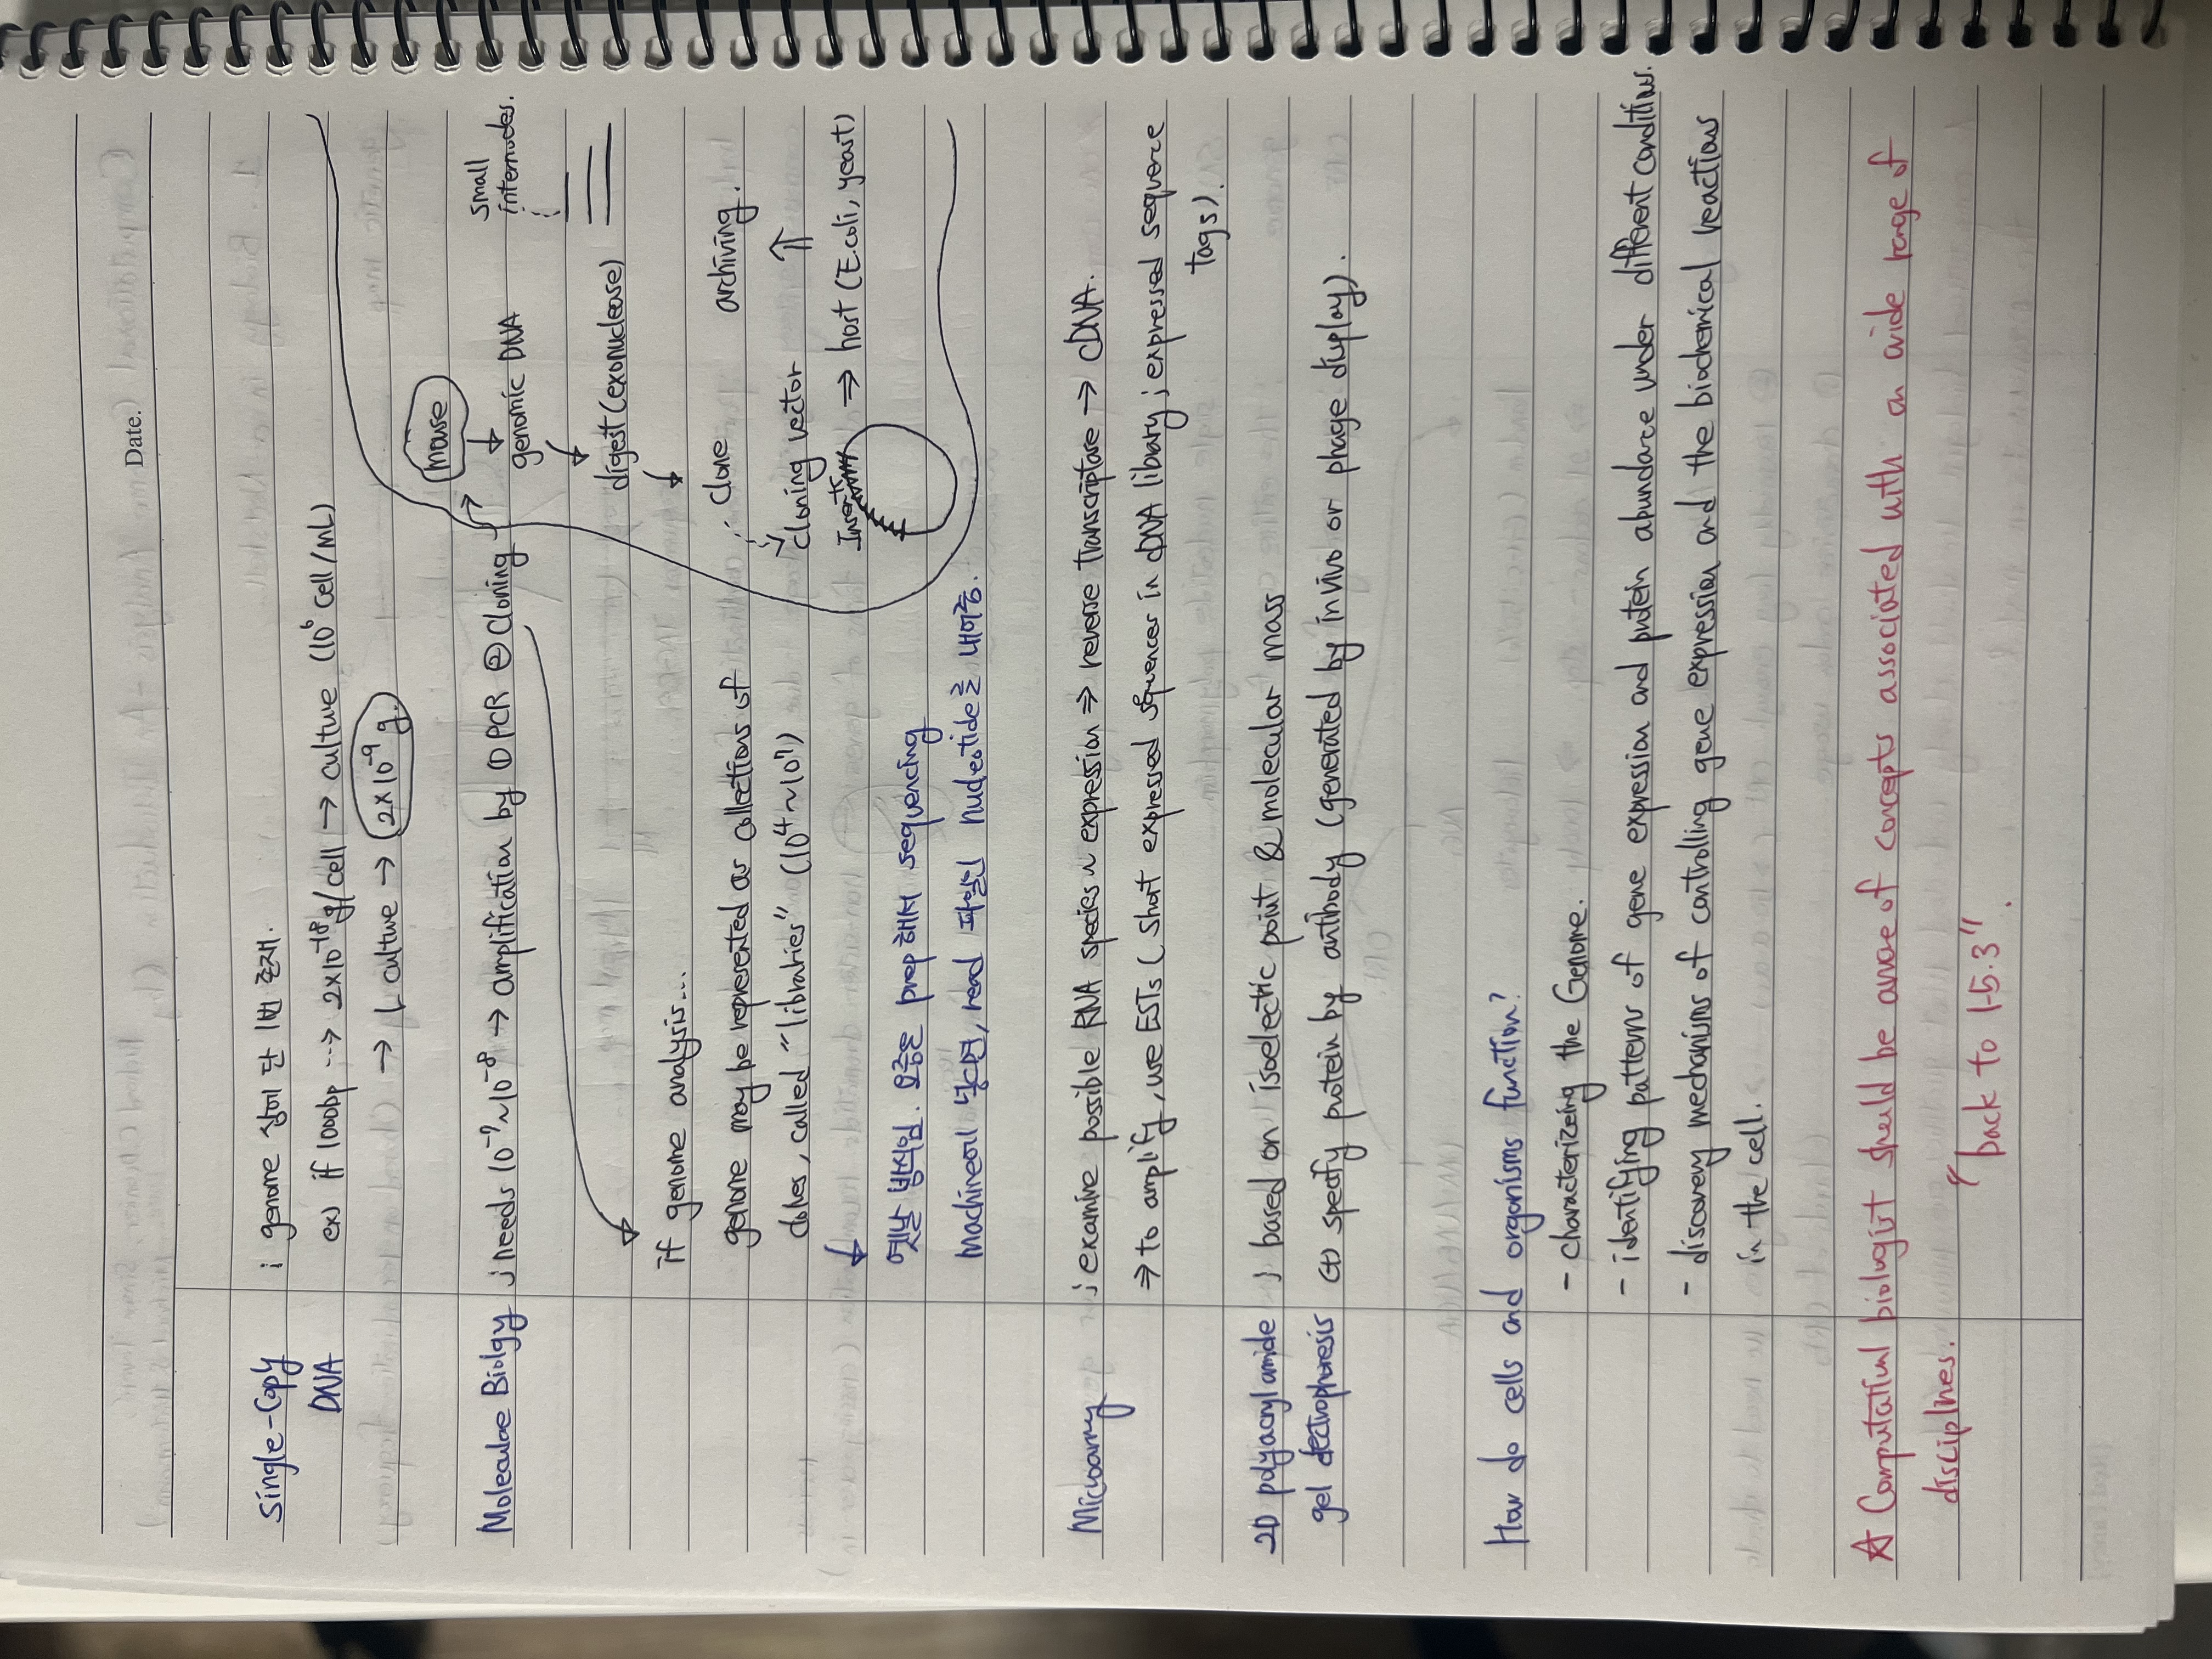 Date.
Single-Copy
DNA
; genome 상에 단 1번 존재.
ex) if 1000bp ⇢ 2×10⁻¹⁸g/cell → culture (10⁶ cell/mL)
→ 1 culture → 2×10⁻⁹ g.
Moleculae Biolgy ; needs 10⁻⁷~10⁻⁸ → amplification by ① PCR ② Cloning →
mouse
↓
genomic DNA
↓
digest (exonuclease)
↓
small
internudes.
clone
archiving.
cloning vector
⇑
Insert
⇒ host (E.coli, yeast)
if genome analysis...
genome may be represented as collections of
clones, called "libraries" (10⁴~10⁷)
↓
옛날 방식임. 요즘은 prep해서 sequencing
machine에 넣으면, read 파일인 nucleotide를 내어줌.
Microarray
; examine possible RNA species ~ expression ⇒ reverse transcriptase → cDNA.
⇒ to amplify, use ESTs ( short expressed sequences in cDNA library ; expressed sequence
tags).
2D polyacrylamide
gel dectrophoresis
; based on isoelectic point & molecular mass
(+) specify protein by antibody (generated by in vivo or phage display).
How do cells and organisms function?
- characterizing the Genome.
- identifying patterns of gene expression and protein abundance under different conditions.
- discovery mechanisms of controlling gene expression and the biochemical reactions
in the cell.
☆ Computatinal biologist should be aware of concepts associated with an wide range of
disciplnes.
"back to 1-5.3".